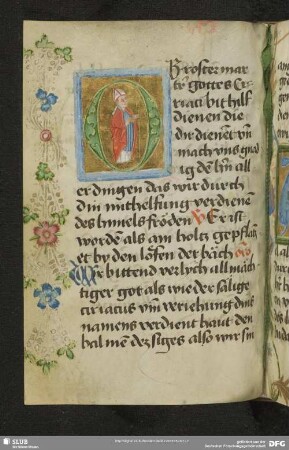 O Groster mar
gottes Ci
riaci bit hilf
dienen die
dir dienet vn̄
mach vns gnad
ig dē hrn̄ all
er dingen das wir durch
din mithelfung verdienē
des himels fröden V Er ist
wordē als ain holtz gepflantz
et by den löfen der bäch
Wir bittend verlych allmäch
tiger got als wie der sälige
ciriacus vm̄ veriehung dins
namens verdient haut den
balmē dez siges also wir sin
SLUB
DFG